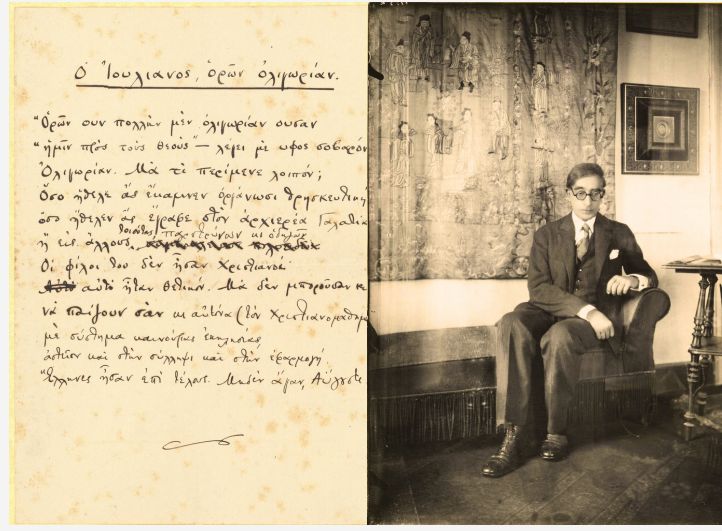 Ὁ Ἰουλιανος, ὁρῶν ὀλιγωρίαν.
“Ὁρῶν ουν πολλὴν μὲν ὀλιγωρίαν ουσαν
“ἡμῖν πρὸς τοὺς θεους” — λεγει μὲ υφος σοβαρόν
Ὀλιγωρίαν. Μὰ τί περίμενε λοιπόν;
Ὅσο ἤθελε ἄς ἔκαμνεν ὀργάνωσι θρησκευτική
ὅσο ἤθελεν ἄς ἔγραφε στὸν ἀρχιερέα Γαλατία
τοιούτους παροτρύνων κι ὁδηγῶν
ἤ εἰς ἄλλους
Οἱ φίλοι του δὲν ἦσαν Χριστιανοί
αὐτὸ ἦταν θετικόν. Μὰ δὲν μπορούσαν κι
νὰ παίζουν σὰν κι αὐτόνα (τὸν Χριστιανομαθημ
μὲ σύστημα καινούριας ἐκκλησίας
ἀστεῖον καὶ στὴν σύλληψι καὶ στὴν ἐφαρμογή.
Ἕλληνες ἦσαν ἐπὶ τέλους. Μηδὲν ἄγαν, Αὔγουστε.